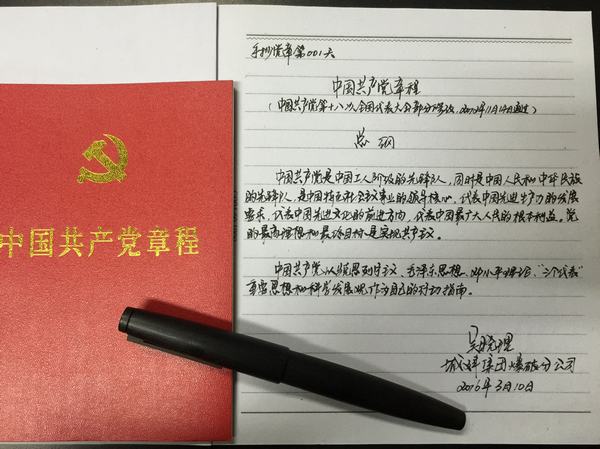 中国共产党章程
手抄党章第001天
中国共产党章程
（中国共产党第十八次全国代表大会部分修改，2012年11月14日通过）
总纲
中国共产党是中国工人阶级的先锋队，同时是中国人民和中华民族
的先锋队，是中国特色社会主义事业的领导核心，代表中国先进生产力的发展
要求，代表中国先进文化的前进方向，代表中国最广大人民的根本利益。党
的最高理想和最终目标是实现共产主义。
中国共产党以马克思列宁主义、毛泽东思想、邓小平理论、“三个代表”
重要思想和科学发展观作为自己的行动指南。
集团爆破分公司
2016年3月10日